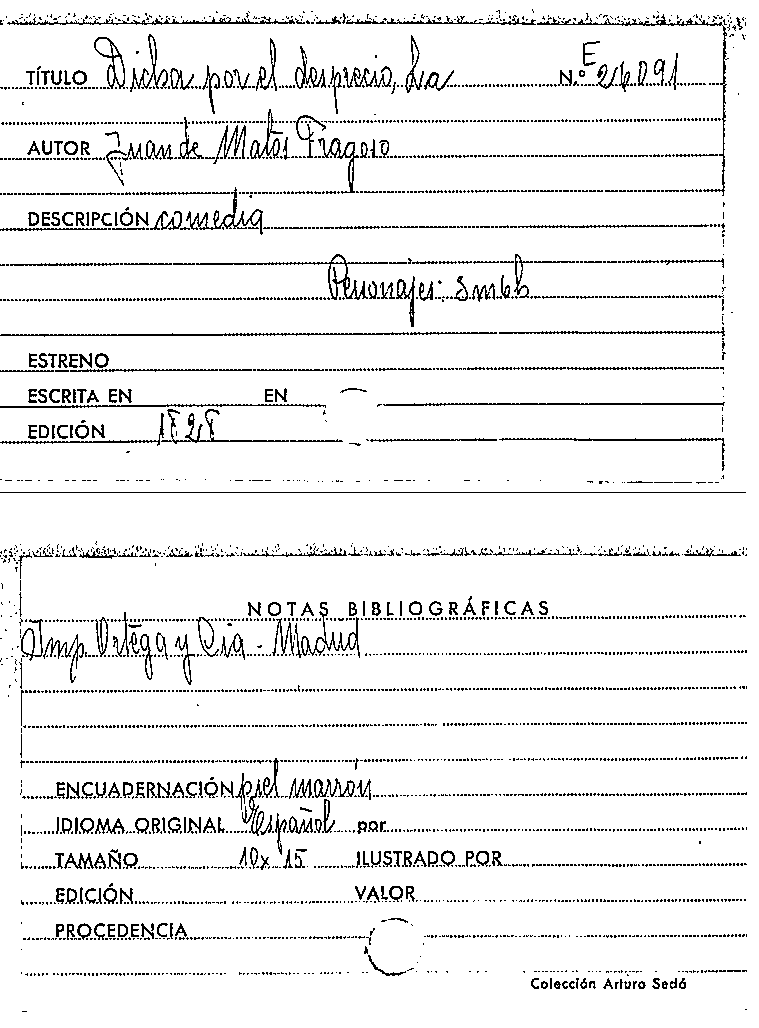 TÍTULO Dicha por el desprecio, La N.º E 26091
AUTOR Juan de Matos Fragoso
DESCRIPCIÓN comedia
Personajes: 3m6h
ESTRENO
ESCRITA EN EN
EDICIÓN 1828
NOTAS BIBLIOGRÁFICAS
Imp Ortega y Cia - Madrid
ENCUADERNACIÓN piel marrón
IDIOMA ORIGINAL Español por
TAMAÑO 10x 15 ILUSTRADO POR
EDICIÓN VALOR
PROCEDENCIA
Colección Arturo Sedó